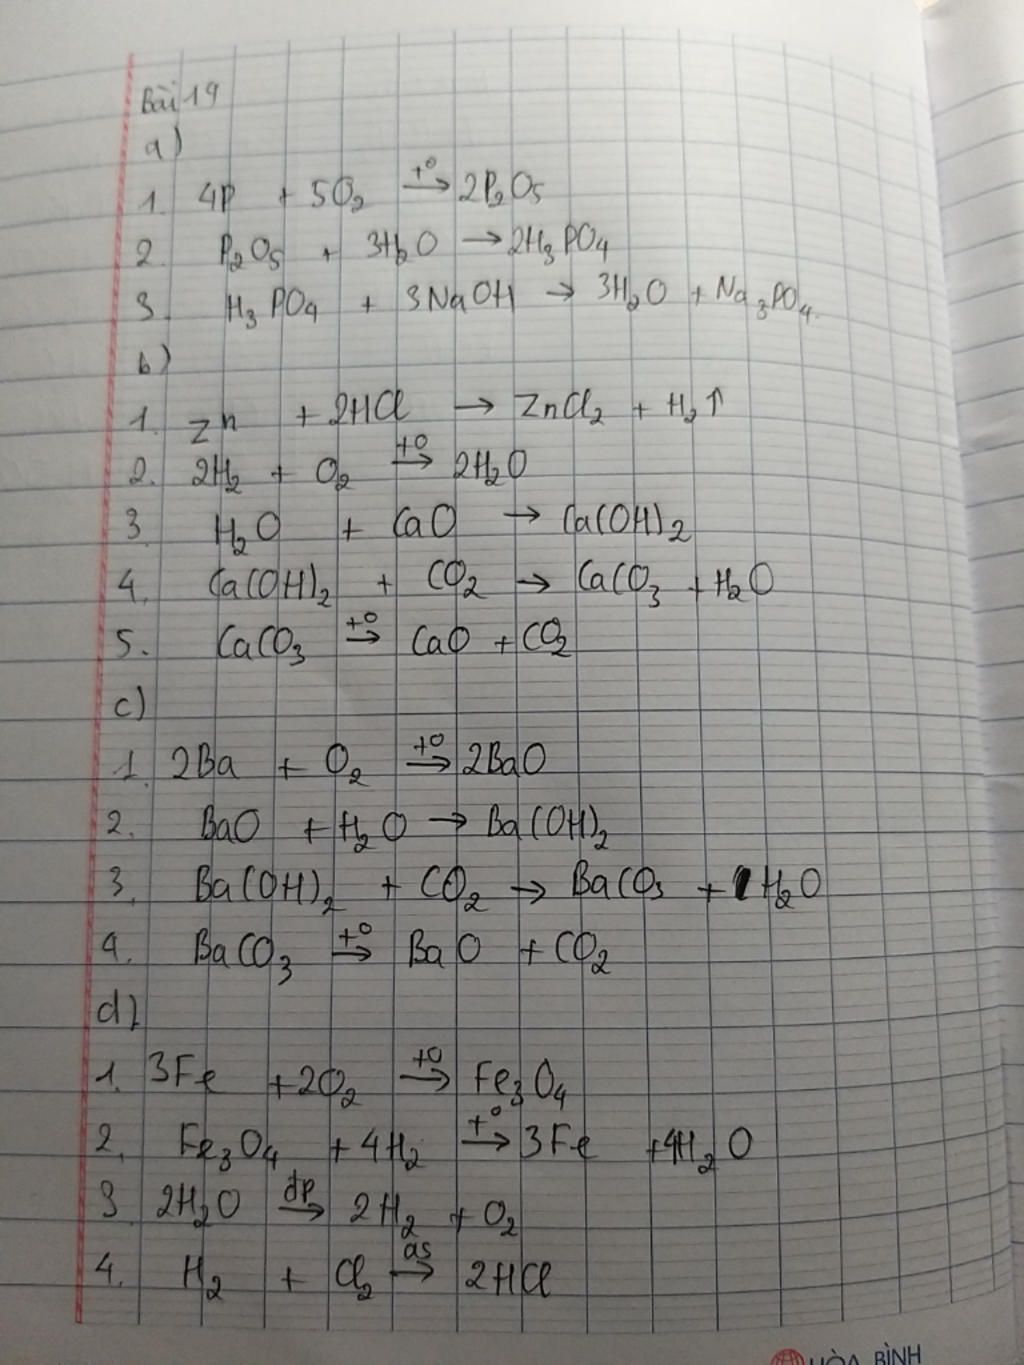 Bài 19
a)
1. 4P + 5O₂ →(t°) 2P₂O₅
2. P₂O₅ + 3H₂O → 2H₃PO₄
3. H₃PO₄ + 3NaOH → 3H₂O + Na₃PO₄
b)
1. Zn + 2HCl → ZnCl₂ + H₂↑
2. 2H₂ + O₂ →(t°) 2H₂O
3. H₂O + CaO → Ca(OH)₂
4. Ca(OH)₂ + CO₂ → CaCO₃ + H₂O
5. CaCO₃ →(t°) CaO + CO₂
c)
1. 2Ba + O₂ →(t°) 2BaO
2. BaO + H₂O → Ba(OH)₂
3. Ba(OH)₂ + CO₂ → BaCO₃ + H₂O
4. BaCO₃ →(t°) BaO + CO₂
d)
1. 3Fe + 2O₂ →(t°) Fe₃O₄
2. Fe₃O₄ + 4H₂ →(t°) 3Fe + 4H₂O
3 2H₂O →(đp) 2H₂ + O₂
4. H₂ + Cl₂ →(as) 2HCl
HÒA BÌNH